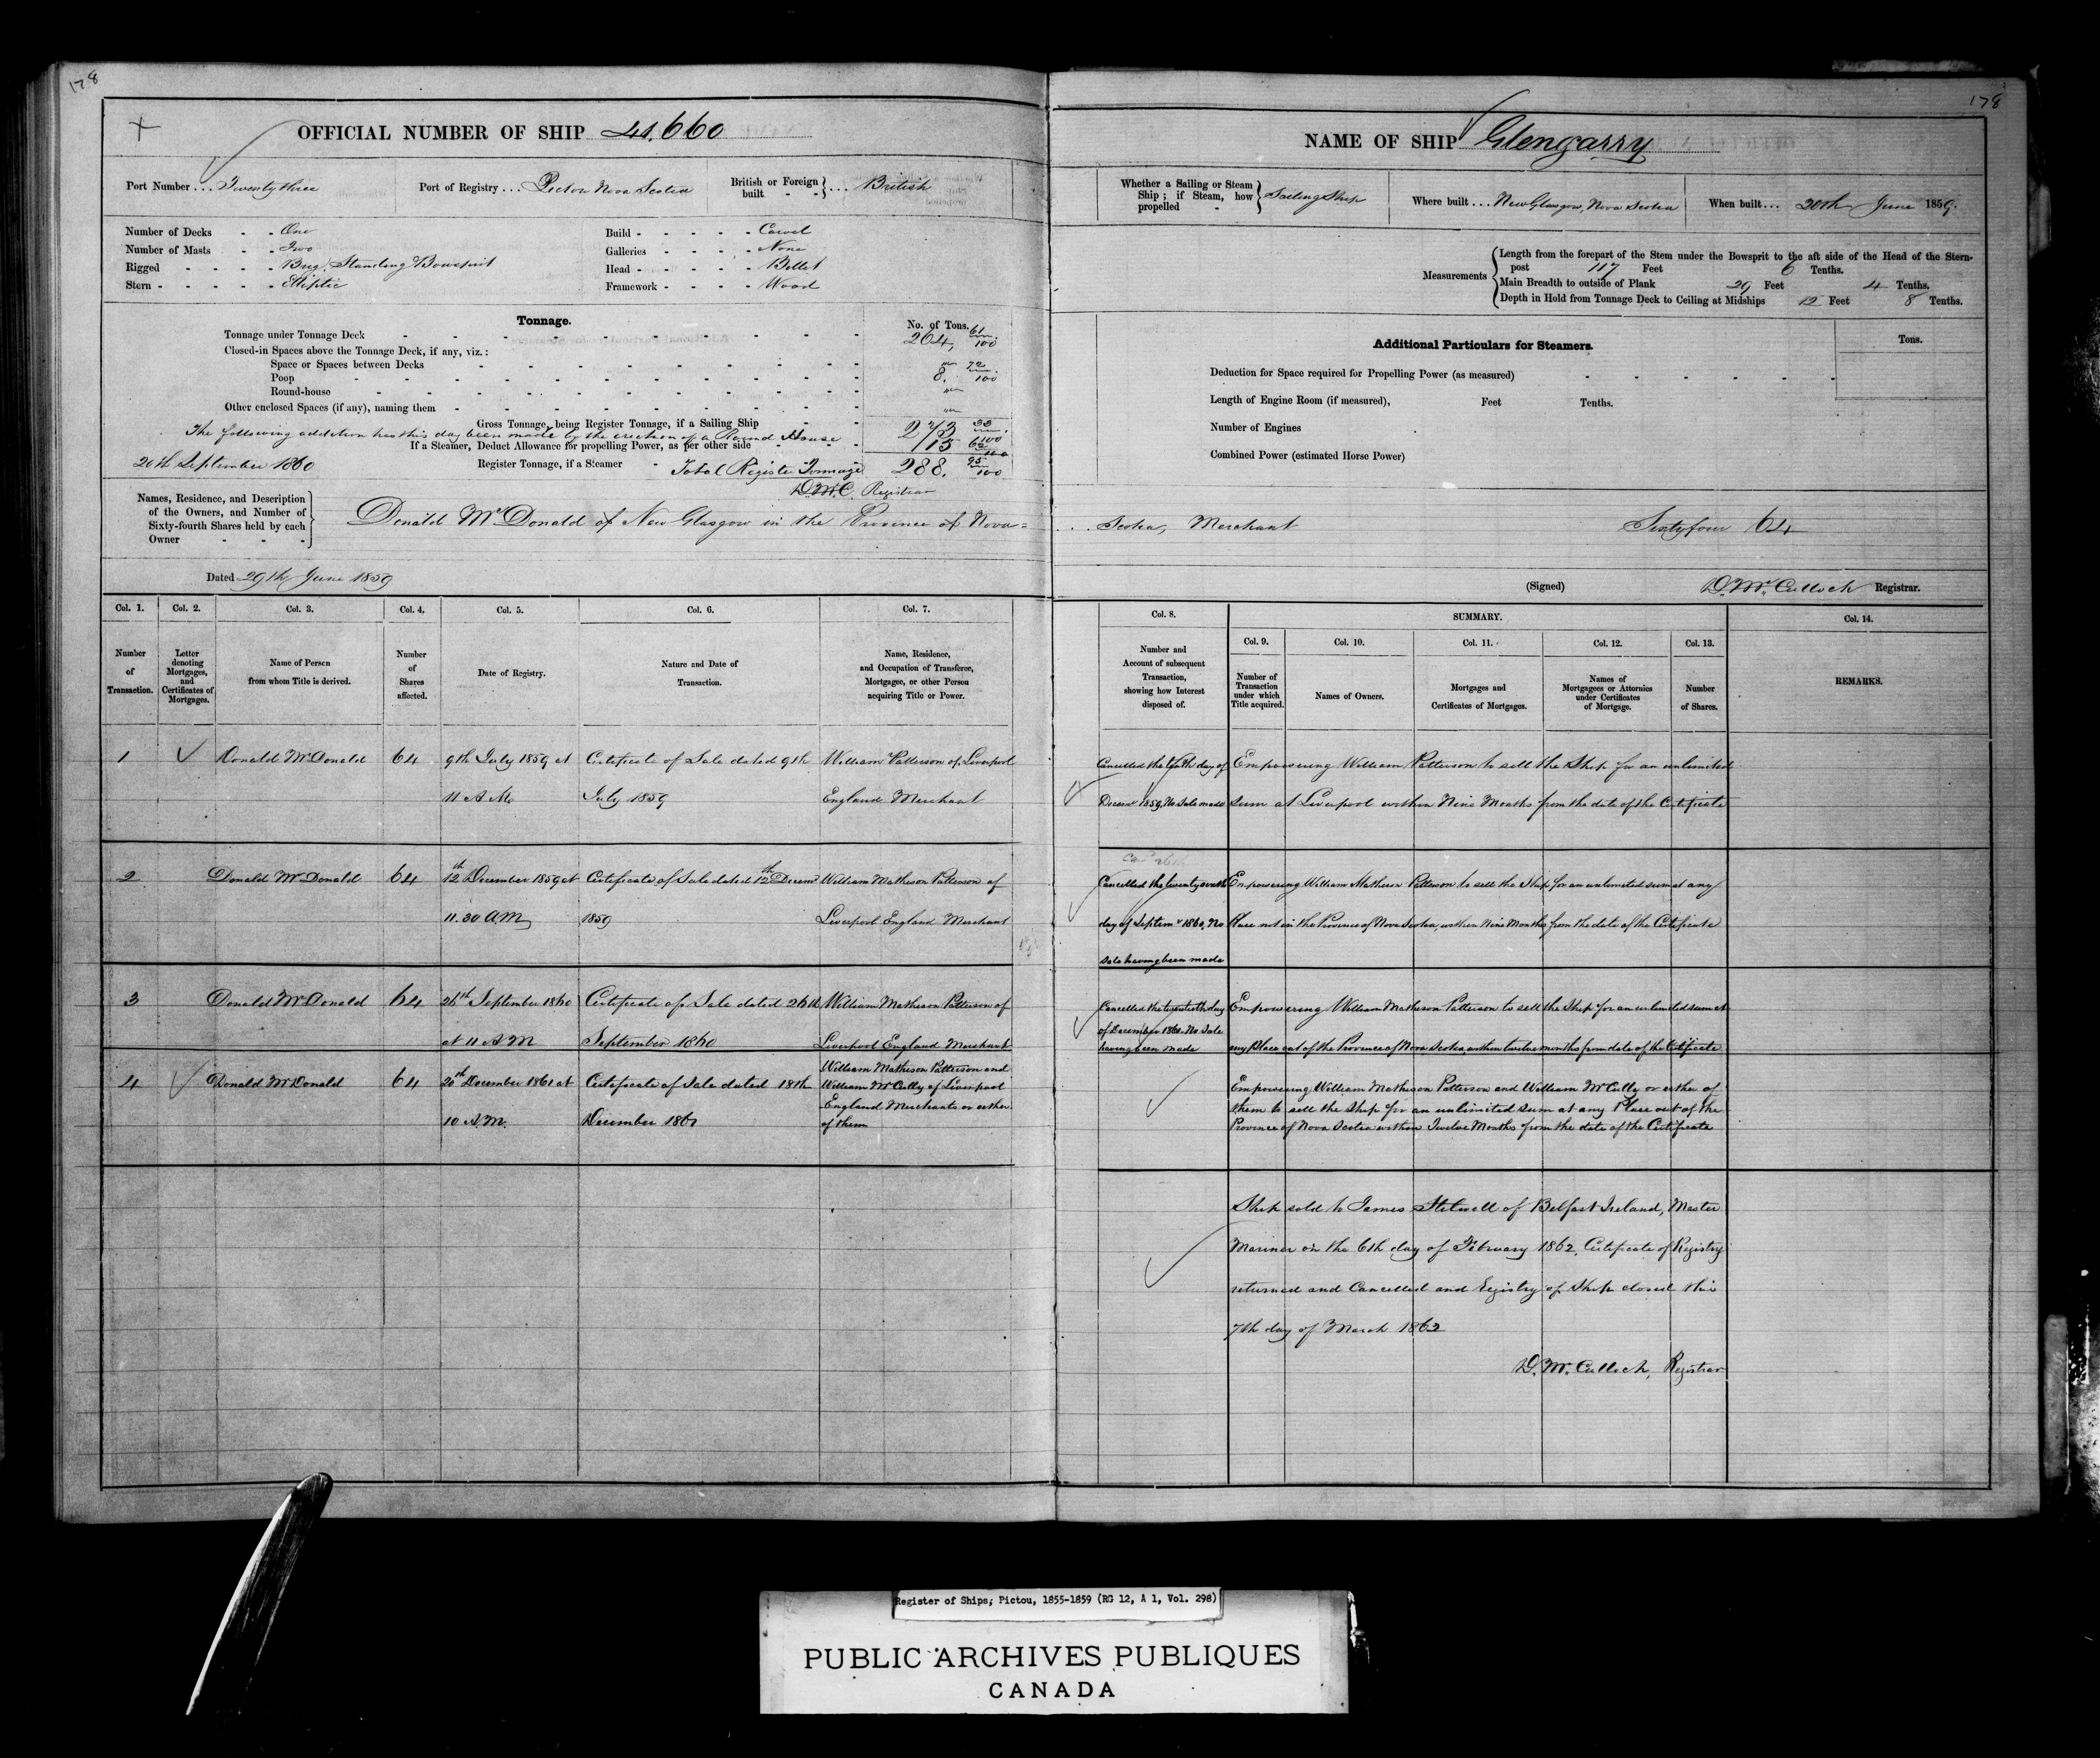 178
OFFICIAL NUMBER OF SHIP 41.660
Port Number ... Twenty three
Port of Registry ... Pictou Nova Scotia
British or Foreign built - - } ... British
Number of Decks - - One
Number of Masts - - Two
Rigged - - - - Brig. Standing Bowsprit
Stern - - - - - Eliptic
Build - - - - - Carvel
Galleries - - - - None
Head - - - - - Billet
Framework - - - - Wood
Tonnage.
No. of Tons.
Tonnage under Tonnage Deck 264, 61/100
Closed-in Spaces above the Tonnage Deck, if any, viz.:
Space or Spaces between Decks "
Poop 8. 72/100
Round-house "
Other enclosed Spaces (if any), naming them "
Gross Tonnage, being Register Tonnage, if a Sailing Ship 273 33/100
The following addition has this day been made by the erection of a Round House
If a Steamer, Deduct Allowance for propelling Power, as per other side 15 62/100
20th September 1860
Register Tonnage, if a Steamer - Total Register Tonnage 288. 95/100
D. McC. Registrar
Names, Residence, and Description
of the Owners, and Number of
Sixty-fourth Shares held by each
Owner - - -
Donald McDonald of New Glasgow in the Province of Nova=
Dated 29th June 1859
Col. 1. Col. 2. Col. 3. Col. 4. Col. 5. Col. 6. Col. 7.
Number of Transaction.
Letter denoting Mortgages, and Certificates of Mortgages.
Name of Person from whom Title is derived.
Number of Shares affected.
Date of Registry.
Nature and Date of Transaction.
Name, Residence, and Occupation of Transferee, Mortgagee, or other Person acquiring Title or Power.
1 Donald McDonald 64 9th July 1859 at Certificate of Sale dated 9th William Patterson of Liverpool
11 A M. July 1859 England Merchant
2 Donald McDonald 64 12th December 1859 at Certificate of Sale dated 12th Decemr William Matheson Patterson of
11.30 A.M. 1859 Liverpool England Merchant
3 Donald McDonald 64 26th September 1860 Certificate of Sale dated 26th William Matheson Patterson of
at 11 A M September 1860 Liverpool England Merchant
4 Donald McDonald 64 20th December 1861 at Certificate of Sale dated 18th William Matheson Patterson and
William McCully of Liverpool
England Merchants or either
10 A.M. December 1861 of them
178
NAME OF SHIP Glengarry
Whether a Sailing or Steam Ship; if Steam, how propelled - } Sailing Ship
Where built ... New Glasgow, Nova Scotia
When built ... 20th June 1859.
Measurements
Length from the forepart of the Stem under the Bowsprit to the aft side of the Head of the Stern-
post 117 Feet 6 Tenths.
Main Breadth to outside of Plank 29 Feet 4 Tenths.
Depth in Hold from Tonnage Deck to Ceiling at Midships 12 Feet 8 Tenths.
Additional Particulars for Steamers.
Tons.
Deduction for Space required for Propelling Power (as measured)
Length of Engine Room (if measured), Feet Tenths.
Number of Engines
Combined Power (estimated Horse Power)
Scotia, Merchant Sixty four 64
(Signed) D. McCulloch Registrar.
Col. 8. SUMMARY. Col. 14.
Col. 9. Col. 10. Col. 11. Col. 12. Col. 13.
Number and Account of subsequent Transaction, showing how Interest disposed of.
Number of Transaction under which Title acquired.
Names of Owners.
Mortgages and Certificates of Mortgages.
Names of Mortgagees or Attornies under Certificates of Mortgage.
Number of Shares.
REMARKS.
Cancelled the day of Empowering William Patterson to sell the Ship for an unlimited
Decemr 1859, No Sale made sum at Liverpool within Nine Months from the date of the Certificate
26th
Cancelled the day of Septemr 1860, No sale having been made
Empowering William Matheson Patterson to sell the Ship for an unlimited sum at any
Place not in the Province of Nova Scotia, within Nine Months from the date of the Certificate
Cancelled the twentieth day
of December 1861. No Sale
having been made
Empowering William Matheson Patterson to sell the Ship for an unlimited sum at
any Place out of the Province of Nova Scotia within twelve months from date of the Certificate
Empowering William Matheson Patterson and William McCully or either of
them to sell the Ship for an unlimited sum at any Place out of the
Province of Nova Scotia within Twelve Months from the date of the Certificate
Ship sold to James Stilwell of Belfast Ireland, Master
Mariner on the 6th day of February 1862. Certificate of Registry
returned and Cancelled and Registry of Ship closed this
7th day of March 1862
D. McCulloch, Registrar
Register of Ships, Pictou, 1855-1859 (RG 12, A 1, Vol. 298)
PUBLIC ARCHIVES PUBLIQUES
CANADA